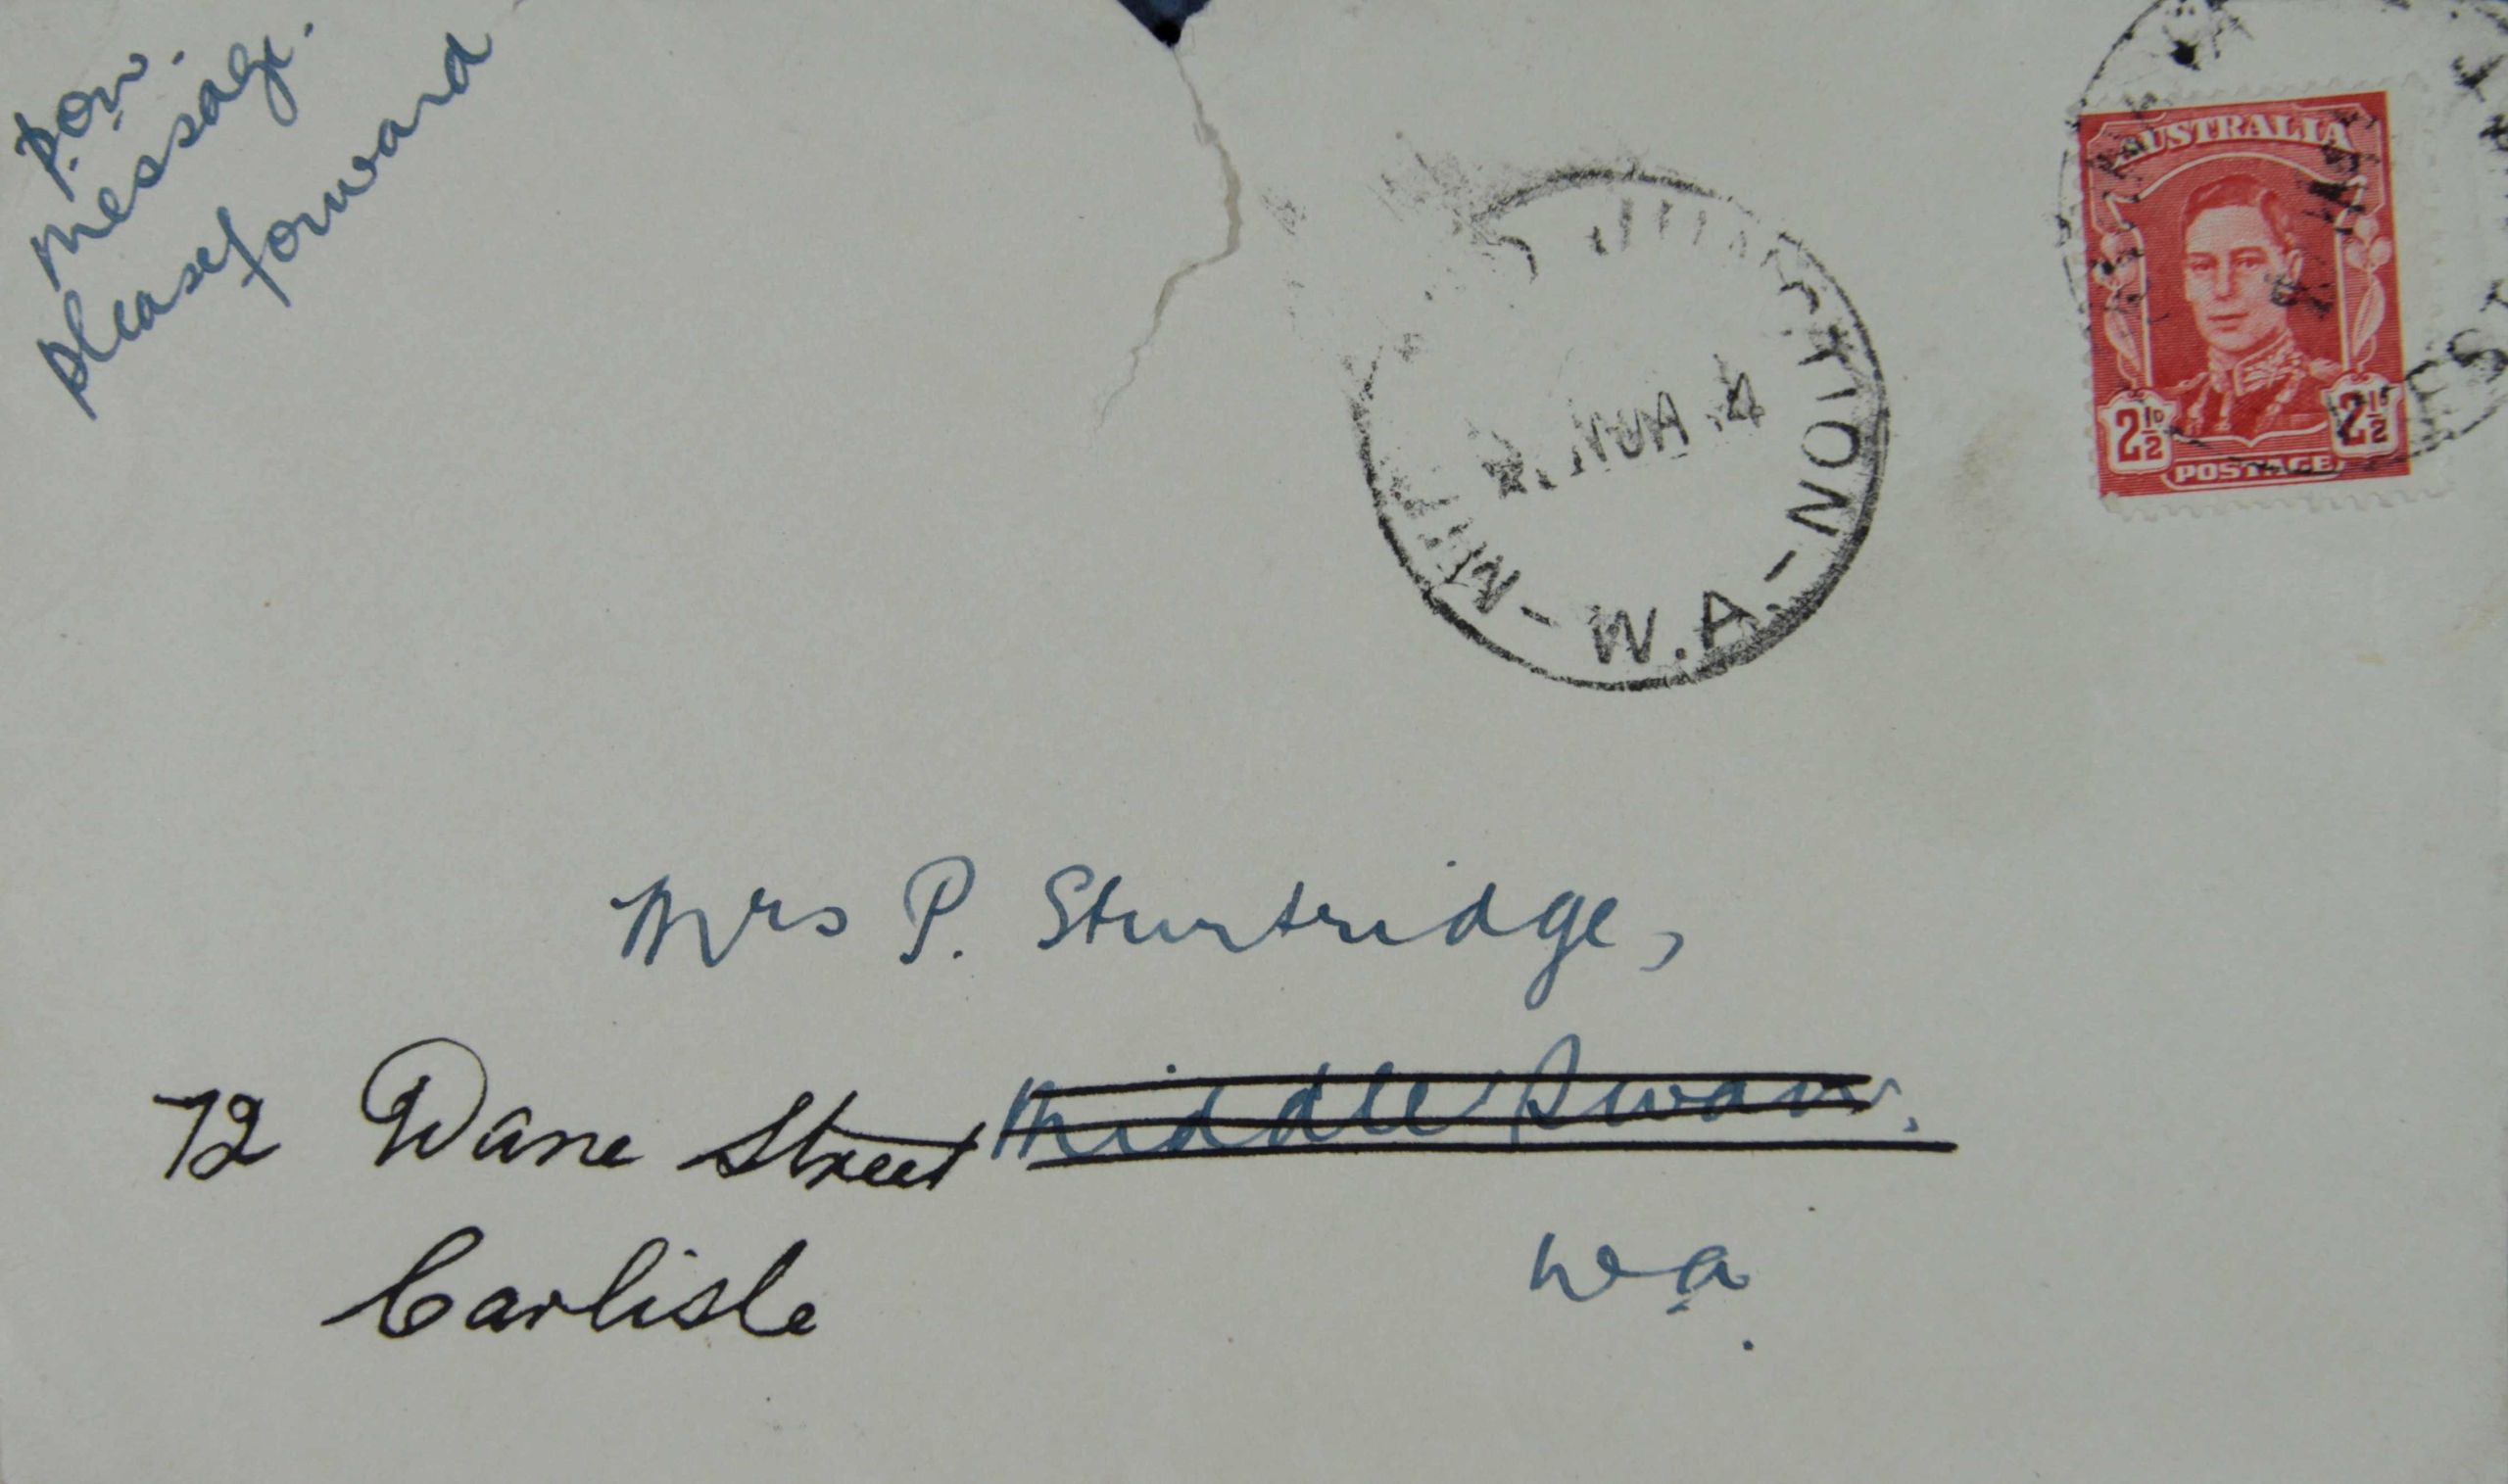 P.O.W.
Message.
please forward
AUSTRALIA
2½D 2½D
POSTAGE
W.A.
Mrs P. Sturtridge,
72 Dane Street Middle Swan.
Carlisle
W.A.